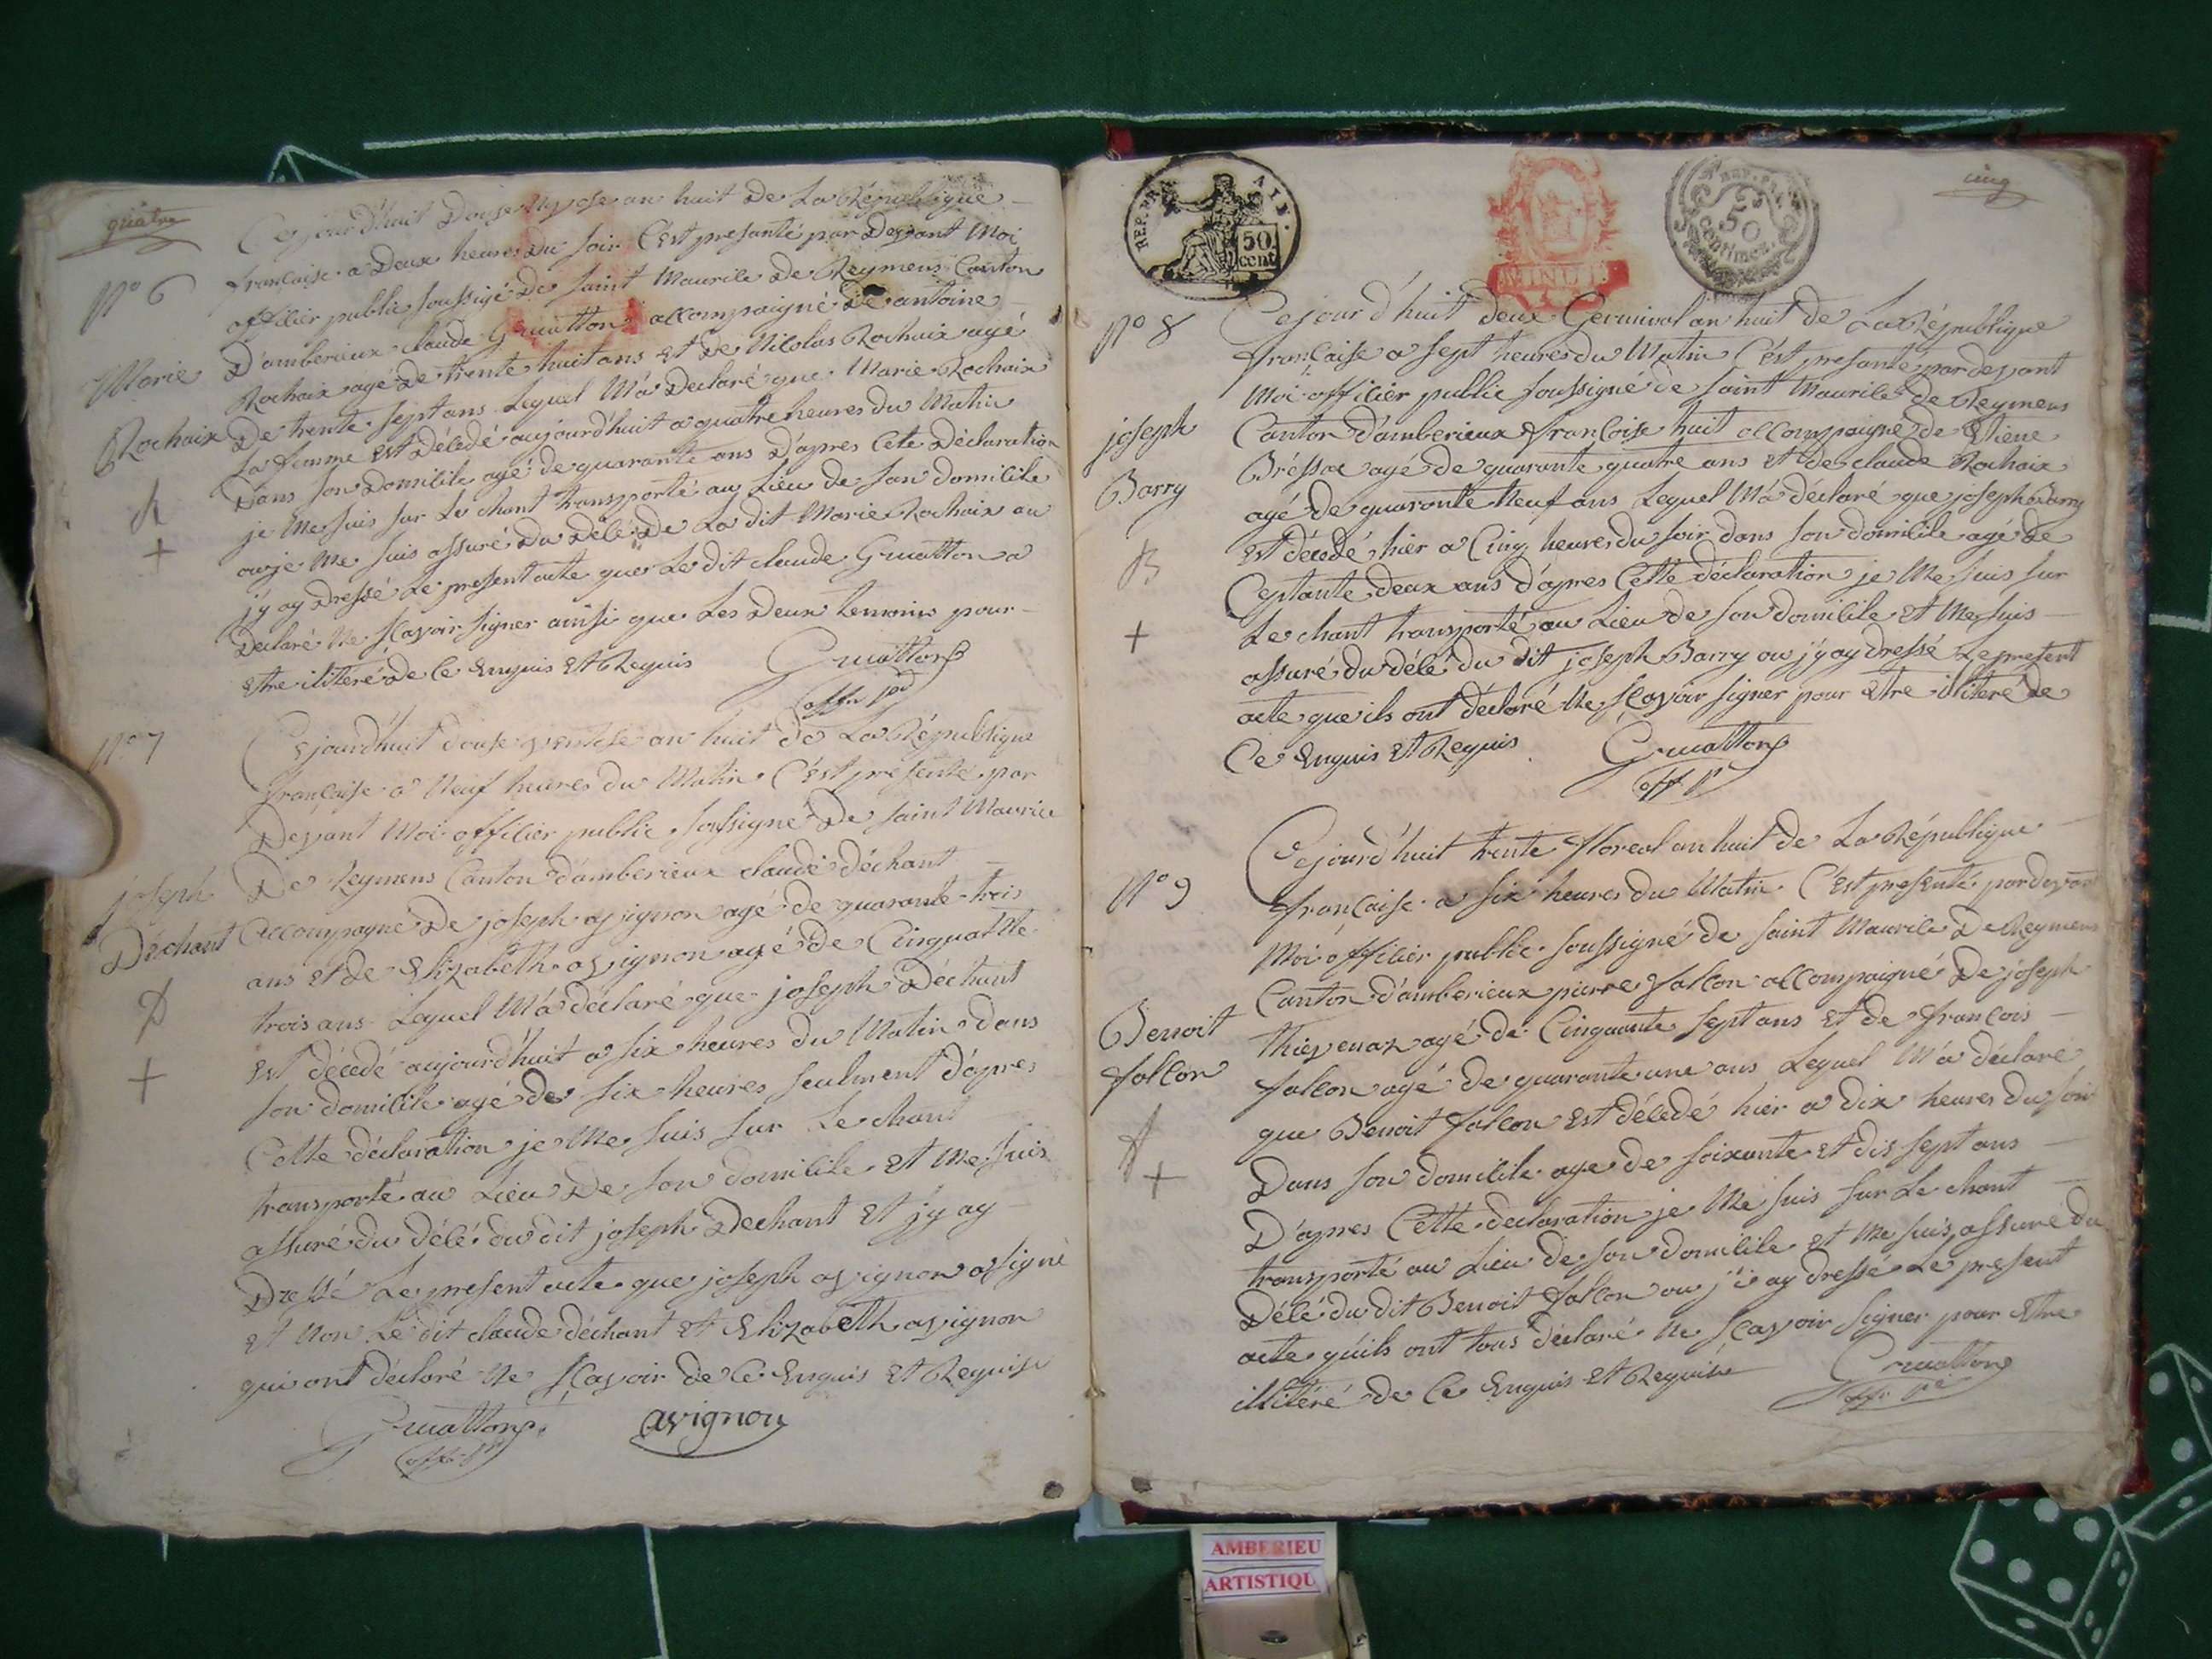 quatre
Cejourd'huit douse Nivose an huit De La République
N° 6
francaise a Deux heures Du soir C'est presanté par Devant Moi
officier public soussigé De saint Maurice De Reymens Canton
D'amberieux claude Gruatton accompaigné De antoine
Marie
Rochaix agé De trente huit ans Et De Nicolas Rochaix agé
Rochaix
De trente sept ans Lequel M'a Declaré que Marie Rochaix
sa femme Est Décedé aujourd'huit a quatre heures du Matin
Dans son Domicile agé de quarante ans D'apres Cete Déclaration
je Me suis sur Le chant transporté au Lieu de son domicile
+
ou je Me suis assuré Du Décé De La dit Marie Rochaix ou
j'y ay Dressé Le present acte que Le dit claude Gruatton a
Declaré Ne scavoir signer ainsi que Les Deux temoins pour
Etre iliteré De Ce Enquis Et Requis
Gruatton
offr pc
N° 7
Cejourd'huit douse ventose an huit de La République
francaise a Neuf heures du Matin C'est presenté par
Devant Moi officier public soussigné De saint Maurice
joseph
De Reymens Canton d'amberieux claude déchant
Déchant
accompagne De joseph avignon agé de quarante trois
ans Et de Elizabeth avignon agé de Cinquatte
D
trois ans Lequel M'a déclaré que joseph Déchant
+
Est décedé aujourd'huit a six heures du Matin dans
son domicile agé de six heures seulment d'apres
Cette déclaration je Me suis sur Le chant
transporté au Lieu De son domicile Et Me suis
assuré du décé du dit joseph Dechant Et j'y ay
Dressé Le present acte que joseph avignon a signé
Et Non Le dit claude déchant Et Elizabeth avignon
qui ont déclaré Ne scavoir de Ce Enquis Et Requise
Gruatton
offr pc
avignon
REP. FRA. AIN.
50 cent
MINUTE
50 centimes
cinq
N° 8
Cejourd'huit deux Germinal an huit de La République
francaise a sept heures du Matin C'est presanté par devant
Moi officier public soussigné de saint Maurice de Reymens
joseph
Canton d'amberieux francoise huit accompaigné de Etiene
Barry
Bréssac agé de quarante quatre ans Et de claude Rochaix
agé de quarante Neuf ans Lequel M'a déclaré que joseph Barry
B
Est décedé hier a Cinq heures du soir dans son domicile agé de
Ceptante deux ans d'apres Cette déclaration je Me suis sur
+
Le chant transporté au Lieu de son domicile Et Me suis
assuré du décé du dit joseph Barry ou j'y ay dressé Le present
acte que ils ont déclaré Ne scavoir signer pour Etre illiteré de
Ce Enquis Et Requis
Gruatton
off pc
Cejourd'huit trente floreal an huit de La République
N° 9
francaise a six heures du Matin C'est presenté par devant
Moi officier public soussigné de saint Maurice De Reymens
Canton d'amberieux pierre falcon accompaigné De joseph
Benoit
thievenaz agé de Cinquante sept ans Et de francois
falcon
falcon agé de quarante une ans Lequel M'a déclaré
que Benoit falcon Est décedé hier a dix heures du soir
+
Dans son domicile age de soixante Et dis sept ans
D'apres Cette declaration je Me suis sur Le chant
transporté au Lieu de son domicile Et Me suis assuré du
Décé du dit Benoit falcon ou j'i ay dressé Le present
acte qu'ils ont tous déclaré Ne scavoir signer pour Etre
illitéré de Ce Enquis Et Requise
Gruatton
offr pc
AMBERIEU
ARTISTIQU